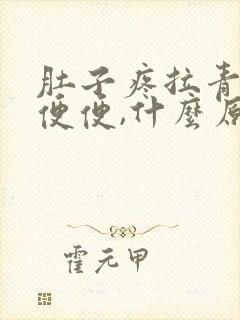 肚子疼拉青
便便,什麼原
霍元甲